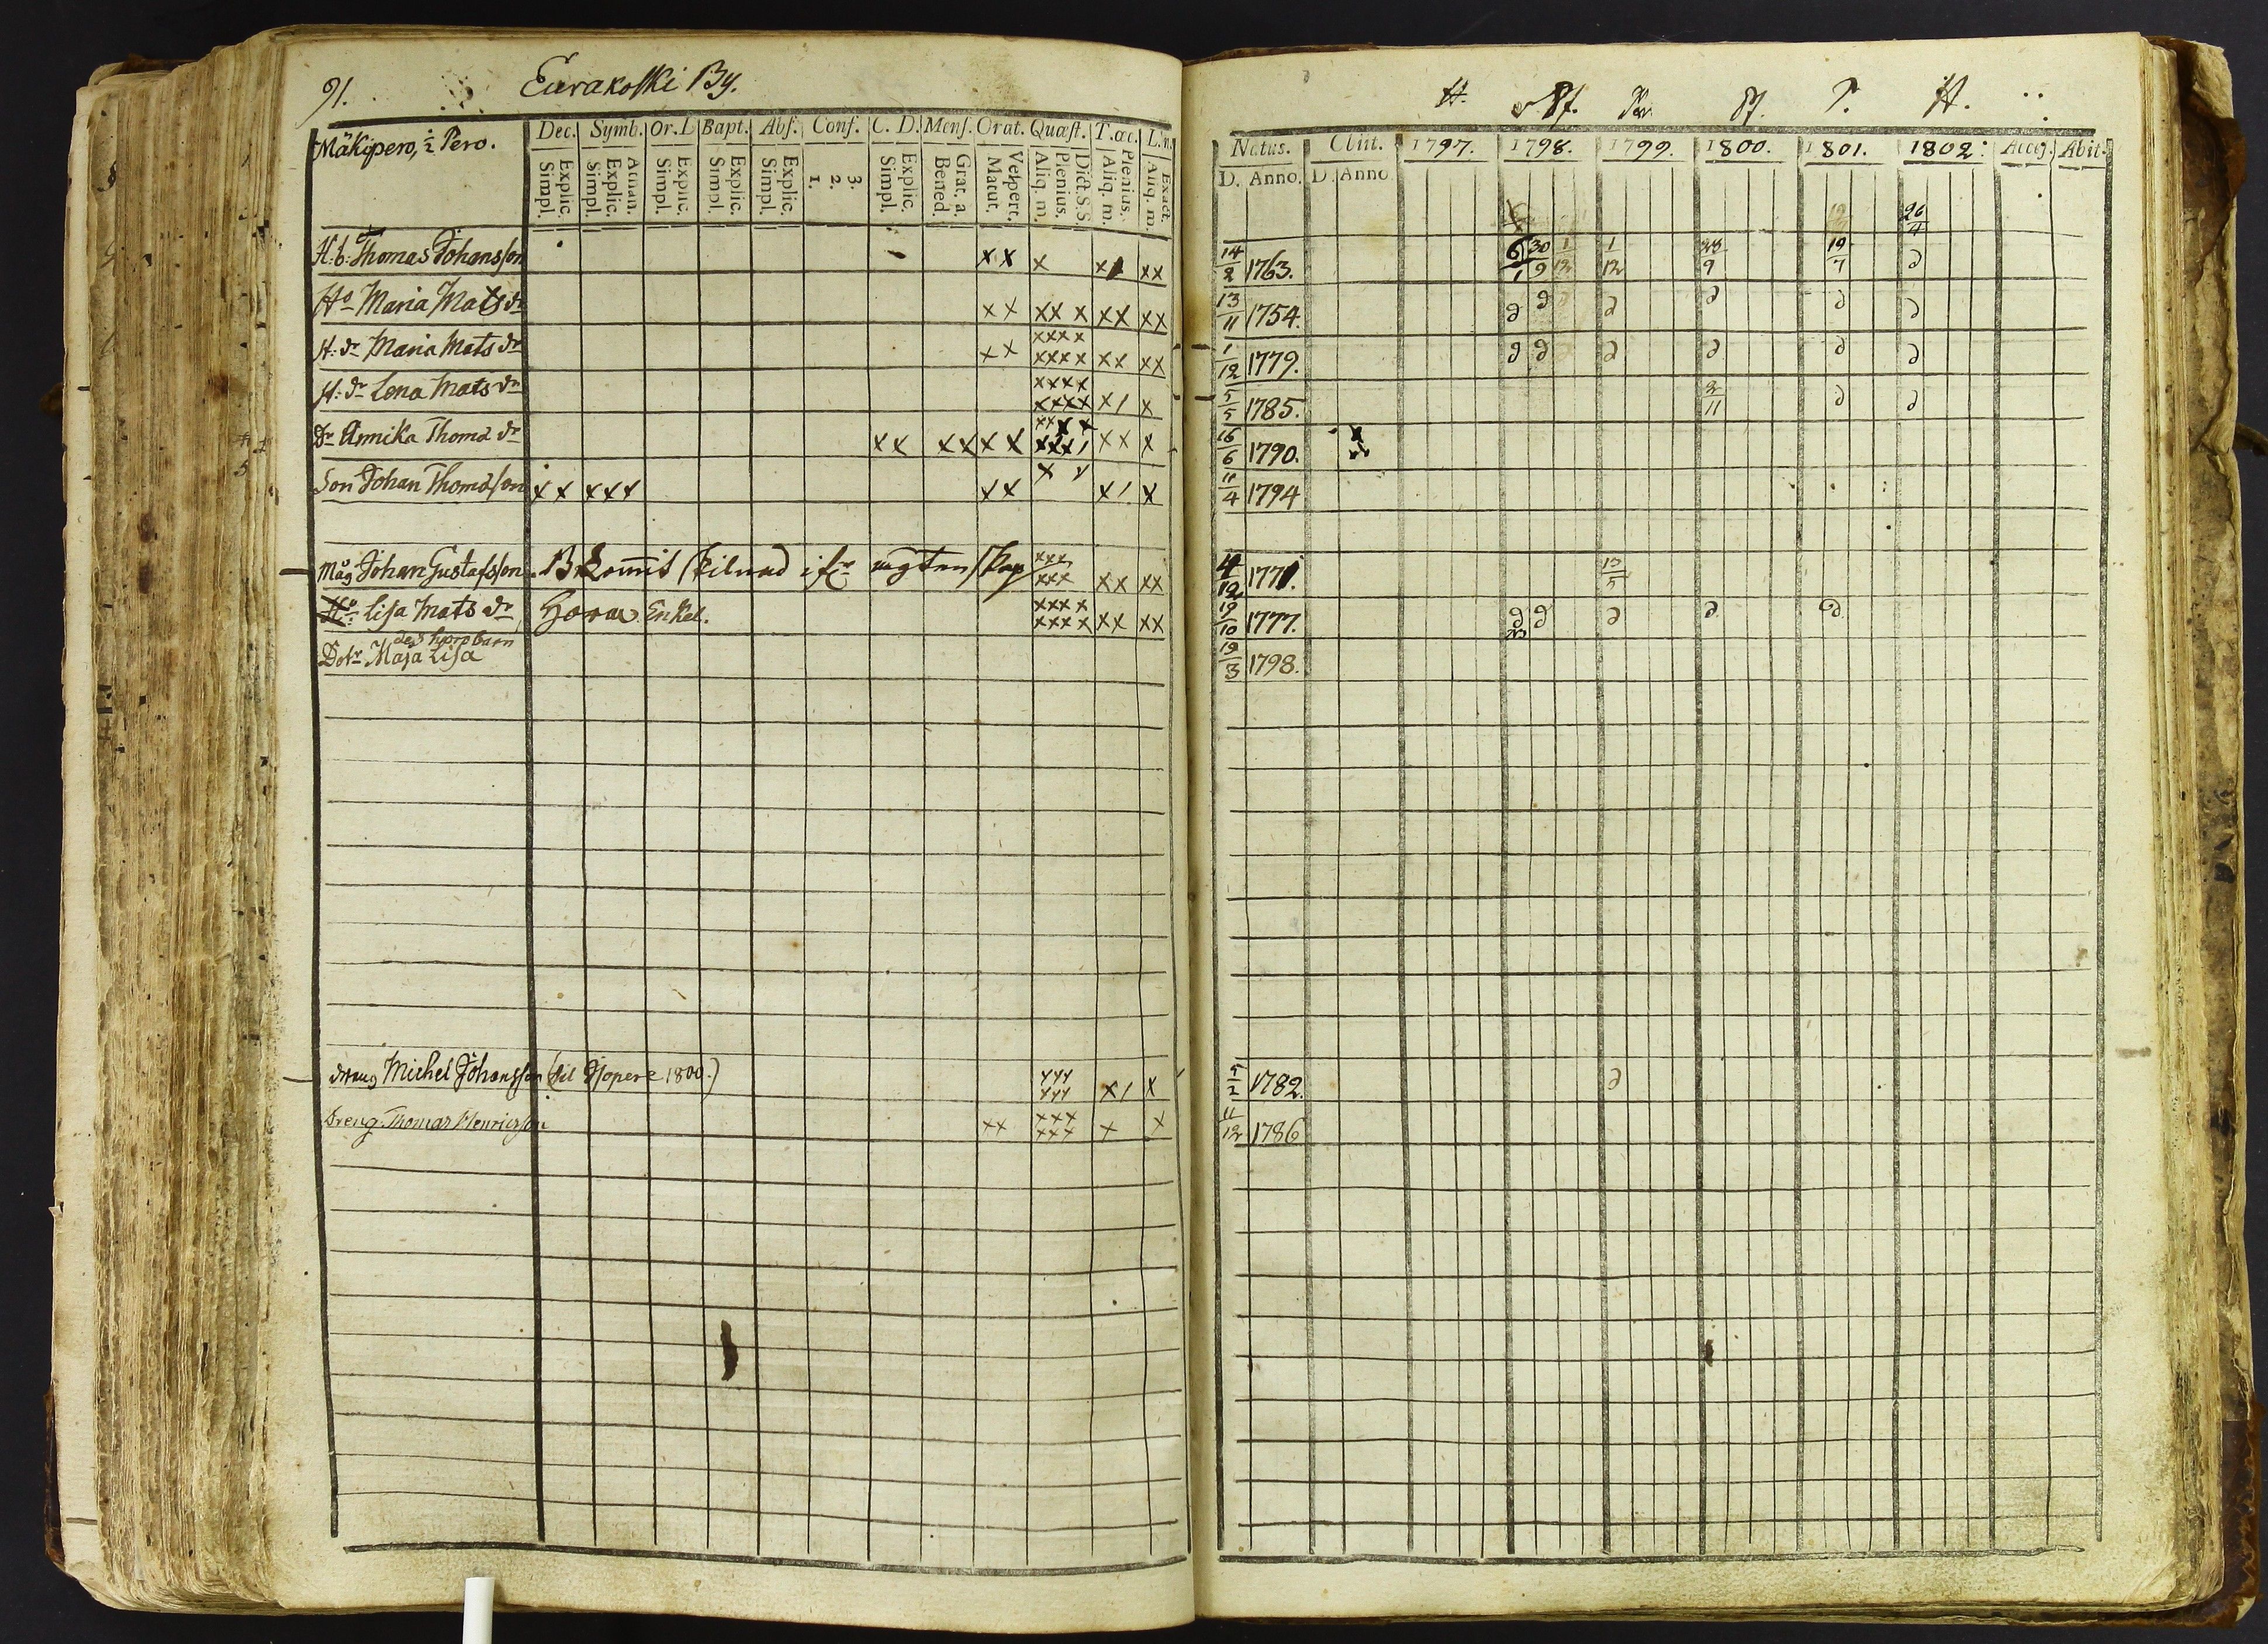 91. Eurakoski By.
Mäkipero, 1/2 Pero.
Dec. Symb. Or. D Bapt. Abs. Conf. C. D. Mens. Orat. Quæst. T. œc. L. in.
Explic. Simpl. Athan. Explic. Simpl. Explic. Simpl. Explic. Simpl. Explic. Simpl. 3. 2. 1. Explic. Simpl. Grat. a. Bened. Vespert. Matut. Dict. S. S. Plenius. Aliq. m. Plenius. Aliq. m. Exact. Aliq. m.
H. b: Thomas Johansson x x x x x x
Ho Maria Mats dr x x x x x x x x x
H: dr Maria Mats dr x x x x x x x x x x x x x x
H: dr Lena Mats dr x x x x x x x x x / x
Dr Annika Thoma dr x x x x x x x x x x x x x / x x x
Son Johan Thomasson x x x x x x x x x / x
Måg Johan Gustafsson Bekommit skilnad ifr ägtenskap x x x x x x x x x x
Ho: Lisa Mats dr Hora Enkel. x x x x x x x x x x x x
des horobarn
Dotr Maja Lisa
dräng Michel Johansson (til Isopere 1800.) x x x x x x x / x
Dreng. Thomas Henricsson x x x x x x x x x x
H. Pf. Pf. P. H.
Natus. Obiit. 1797. 1798. 1799. 1800. 1801. 1802. Acces. Abit.
D. Anno. D. Anno
26/4
14/2 1763. 6/1 30/9 1/12 1/12 28/9 19/7 d
13/11 1754. d d d d d d d
1/12 1779. d d d d d d d
5/5 1785. 2/11 d d
16/6 1790.
11/4 1794
4/12 1771. 13/5
19/10 1777. d d d d d
19/3 1798.
5/2 1782. d
11/12 1786